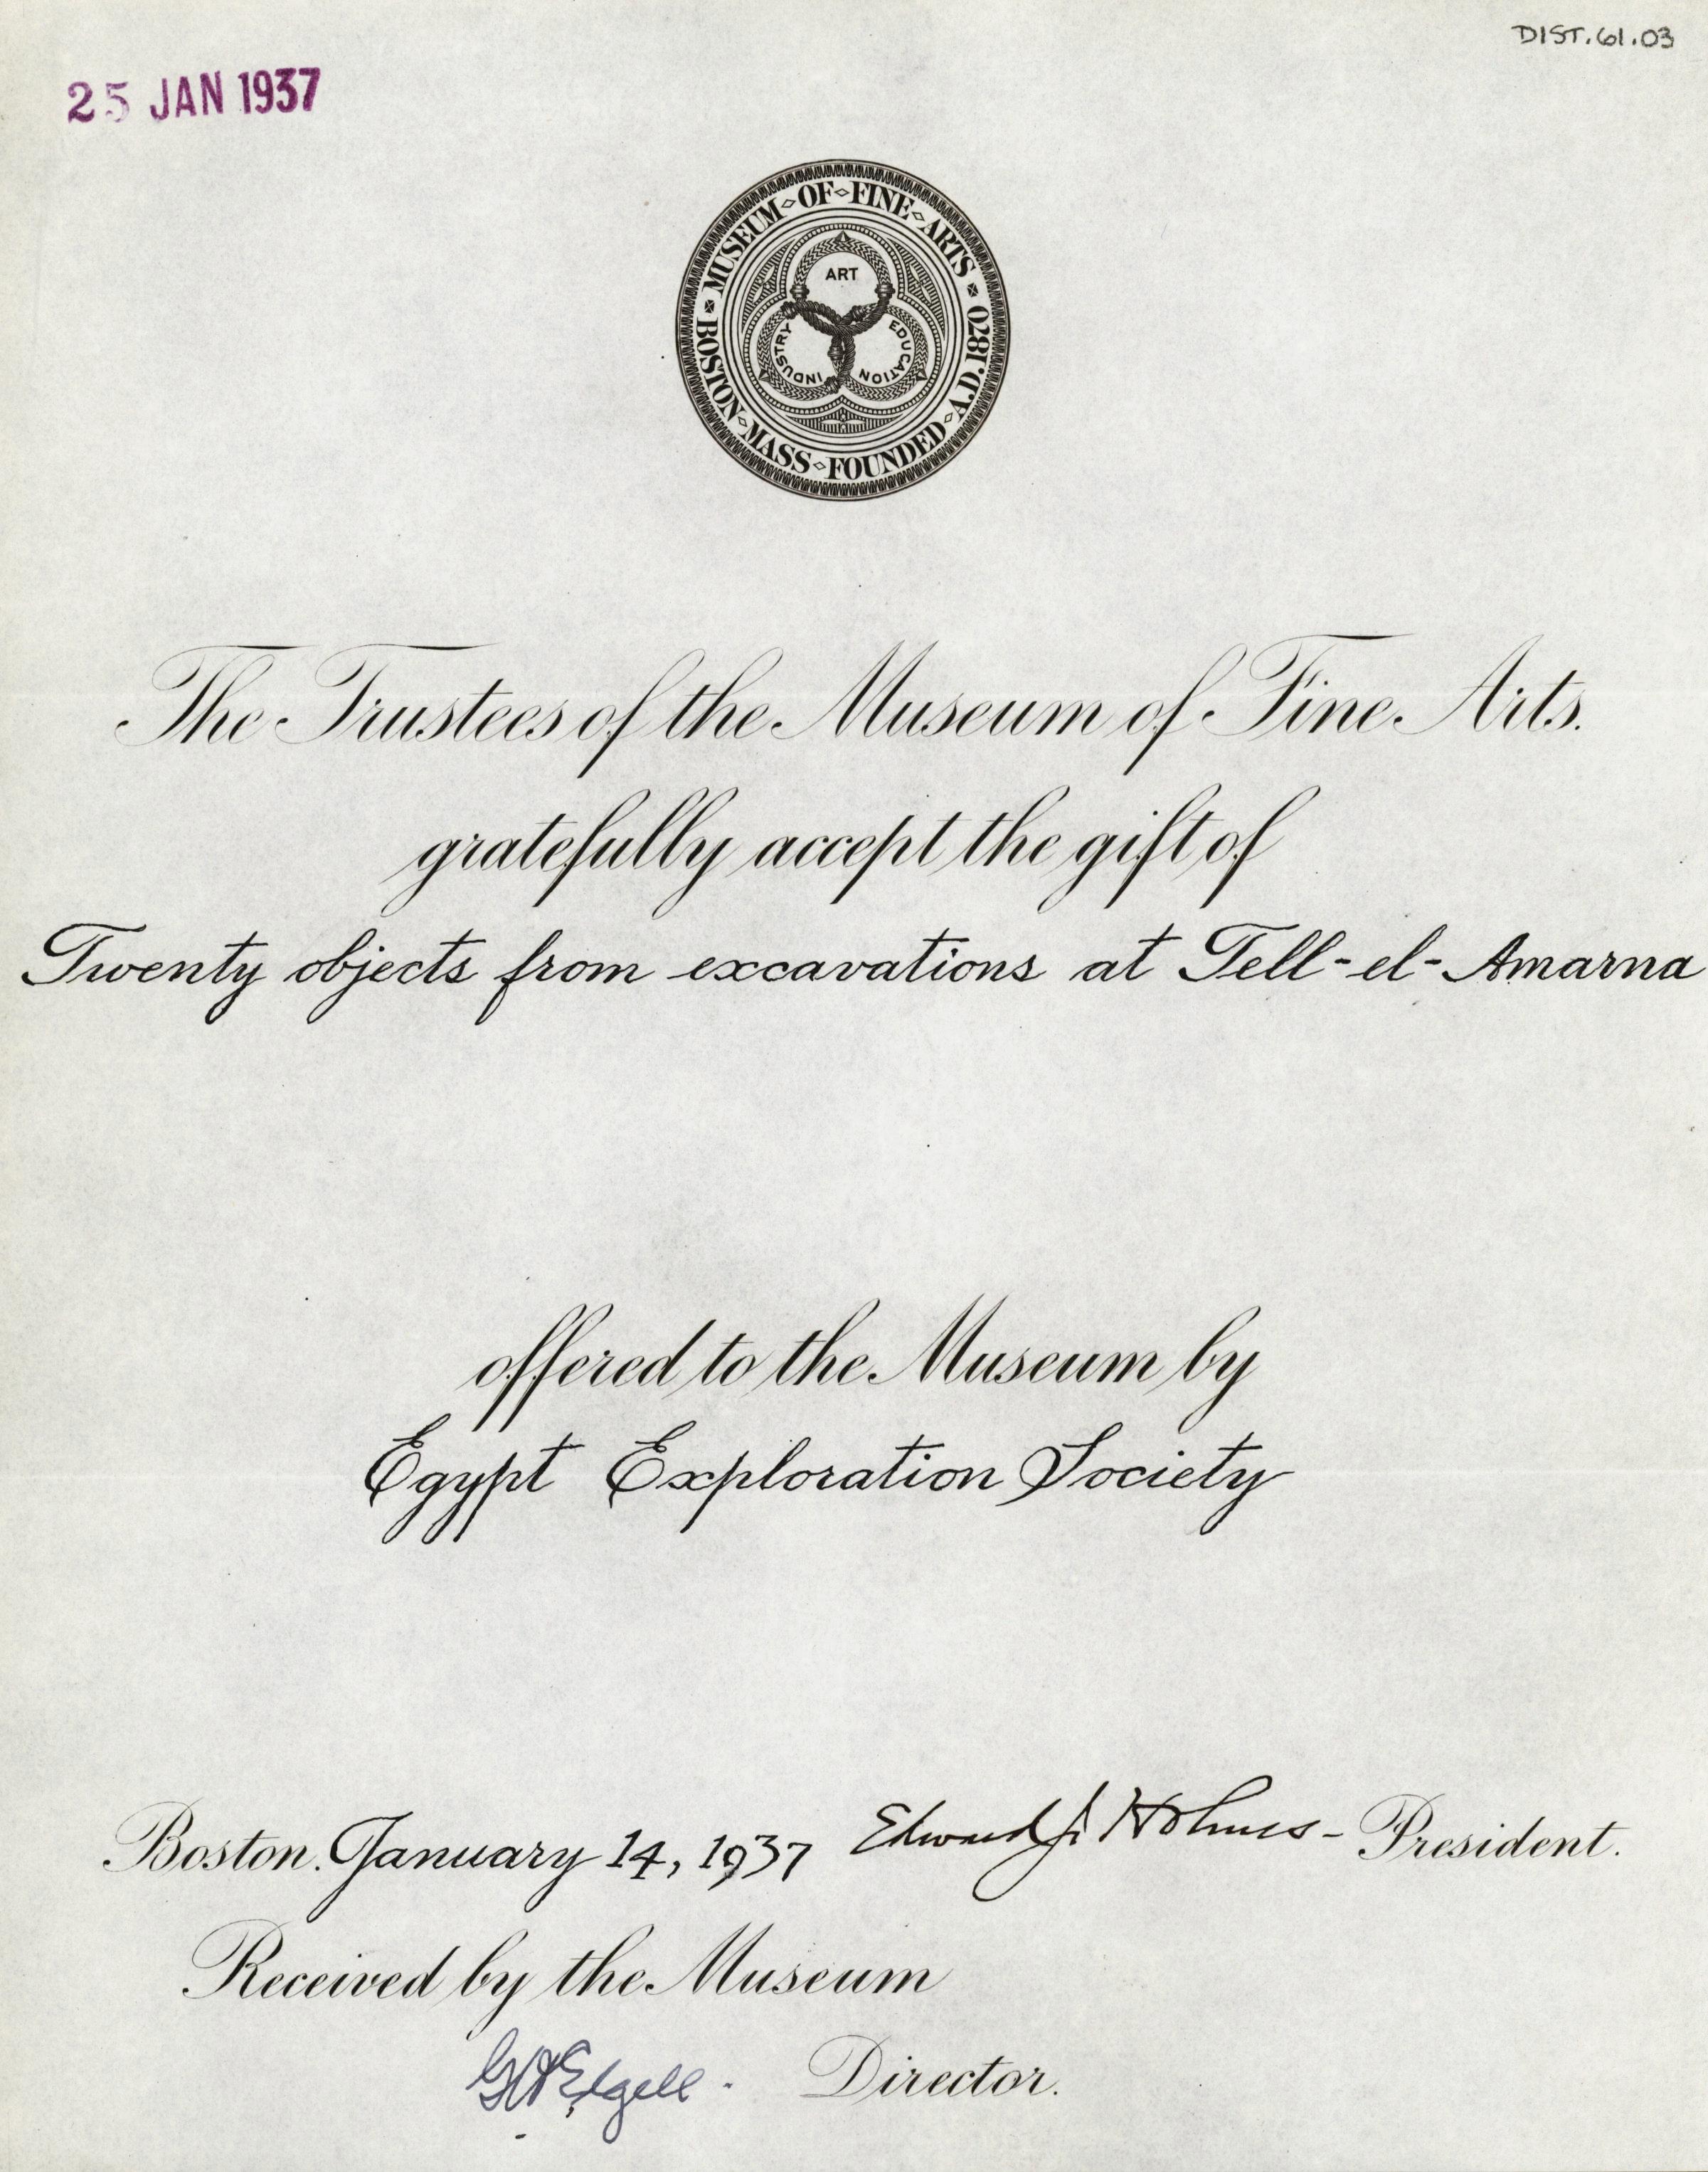 DIST.61.03
25 JAN 1937
MUSEUM OF FINE ARTS
BOSTON MASS FOUNDED A.D. 1870
ART
INDUSTRY
EDUCATION
The Trustees of the Museum of Fine Arts.
gratefully accept the gift of
Twenty objects from excavations at Tell-el-Amarna
offered to the Museum by
Egypt Exploration Society
Boston. January 14, 1937 Edward J. Holmes - President.
Received by the Museum
GH Edgell. Director.